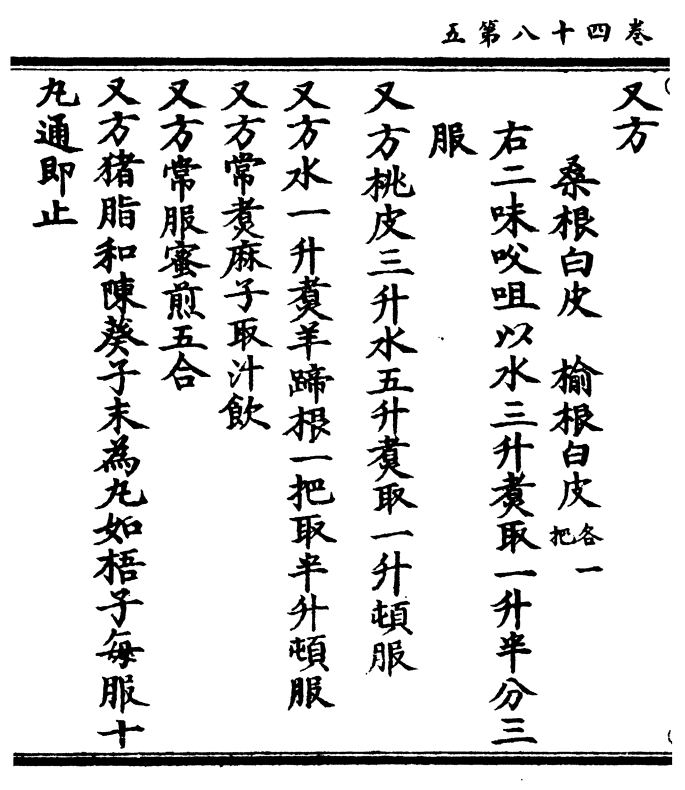 卷四十八第五
又方
桑根白皮　榆根白皮各一把
右二味㕮咀以水三升煑取一升半分三
服
又方桃皮三升水五升煑取一升頓服
又方水一升煑羊蹄根一把取半升頓服
又方常煑麻子取汁飲
又方常服蜜煎五合
又方猪脂和陳葵子末為丸如梧子每服十
丸通即止